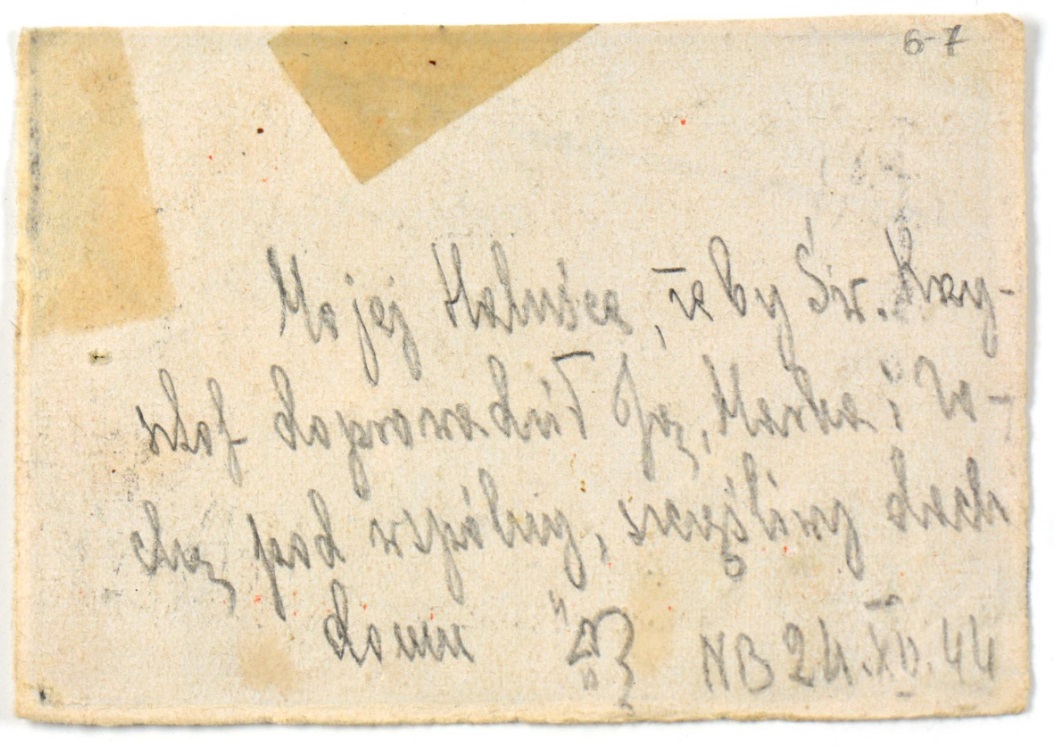 6-7
Mojej Halusce, żeby Św. Krzy-
sztof doprowadził Ją, Marka i Zo-
chę pod wspólny, szczęśliwy dach
domu
NB 24.XII.44